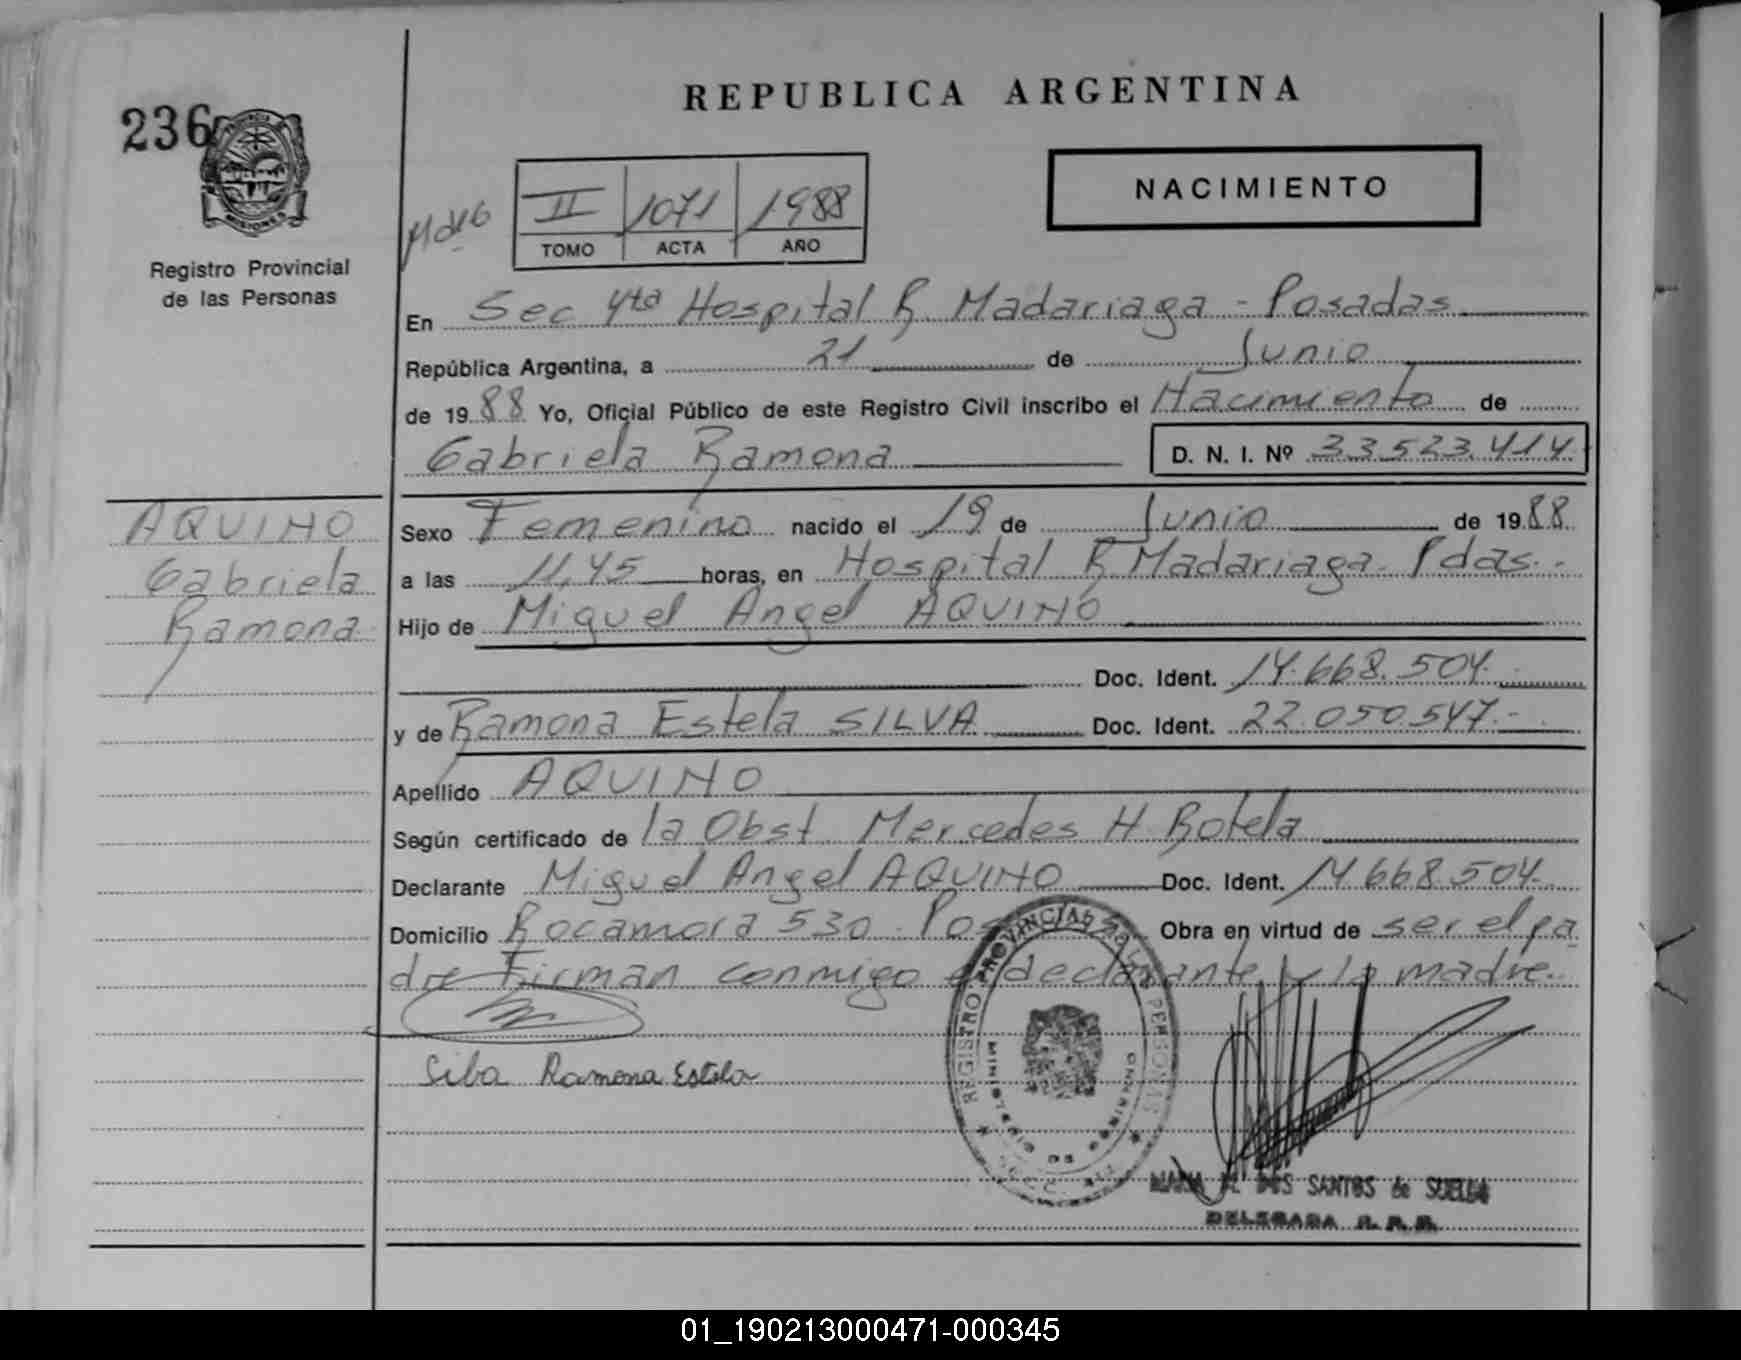 REPUBLICA ARGENTINA
236
PROVINCIA
MISIONES
Registro Provincial
de las Personas
NACIMIENTO
II 1071 1988
TOMO ACTA AÑO
En Sec 4ta Hospital R. Madariaga - Posadas
República Argentina, a 21 de Junio
de 1988 Yo, Oficial Público de este Registro Civil inscribo el Nacimiento de
Gabriela Ramona D. N. I. Nº 33.523.414
AQUINO
Gabriela
Ramona
Sexo Femenino nacido el 19 de Junio de 1988
a las 11,45 horas, en Hospital R. Madariaga - Pdas.-
Hijo de Miguel Angel AQUINO
Doc. Ident. 14.668.504
y de Ramona Estela SILVA Doc. Ident. 22.050.547.-
Apellido AQUINO
Según certificado de la Obst Mercedes H. Botela
Declarante Miguel Angel AQUINO Doc. Ident. 14.668.504
Domicilio Rocamora 530 Obra en virtud de ser el pa
dre Firman conmigo el declarante y la madre.
Silva Ramona Estela
REGISTRO PROVINCIAL PERSONAS
MINISTERIO DE GOBIERNO
MARIA DOS SANTOS de
DELEGADA
01_190213000471-000345